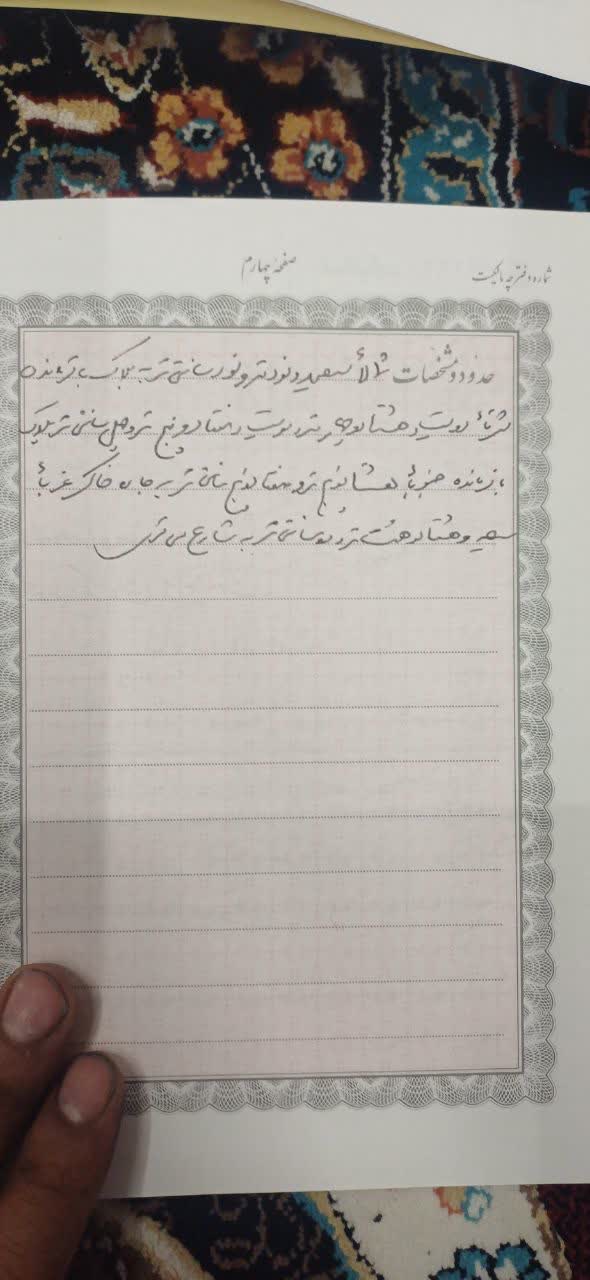 شماره دفترچه مالکیت
صفحه چهارم
حدود و مشخصات شمالاً سیصد و نود متر و نود سانتی متر به پلاک باقیمانده
شرقاً دویست و هشتاد و چهار متر دویست و هفتاد و پنج متر و چهل سانتی متر به پلاک
باقیمانده جنوباً هشتاد و پنج متر و هفتاد و پنج سانتی متر به جاده خاکی غرباً
سیصد و هشتاد و هشت متر سانتی متر به شارع